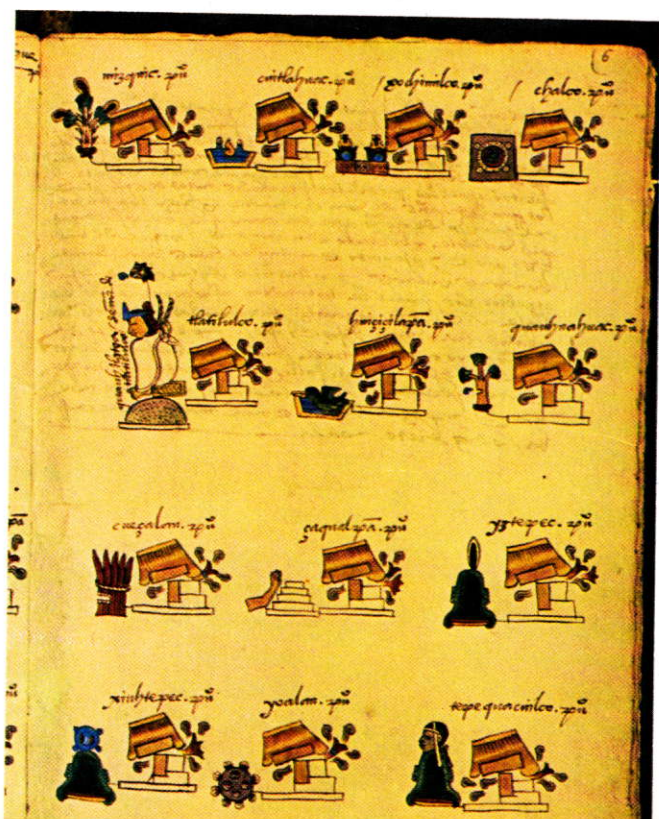 6
mizquic. puº cuitlahuac. puº xochimilco. puº chalco. puº
tlatilulco. puº huiçiçilapā. puº quauhnahuac. puº
cueçalan. puº çaqualpā. puº yztepec. puº
xiuhtepec. puº yoalan. puº tepequacuilco. puº